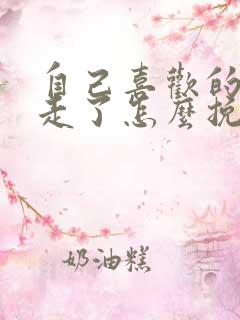 自己喜歡的
走了怎麼挽
奶油糕